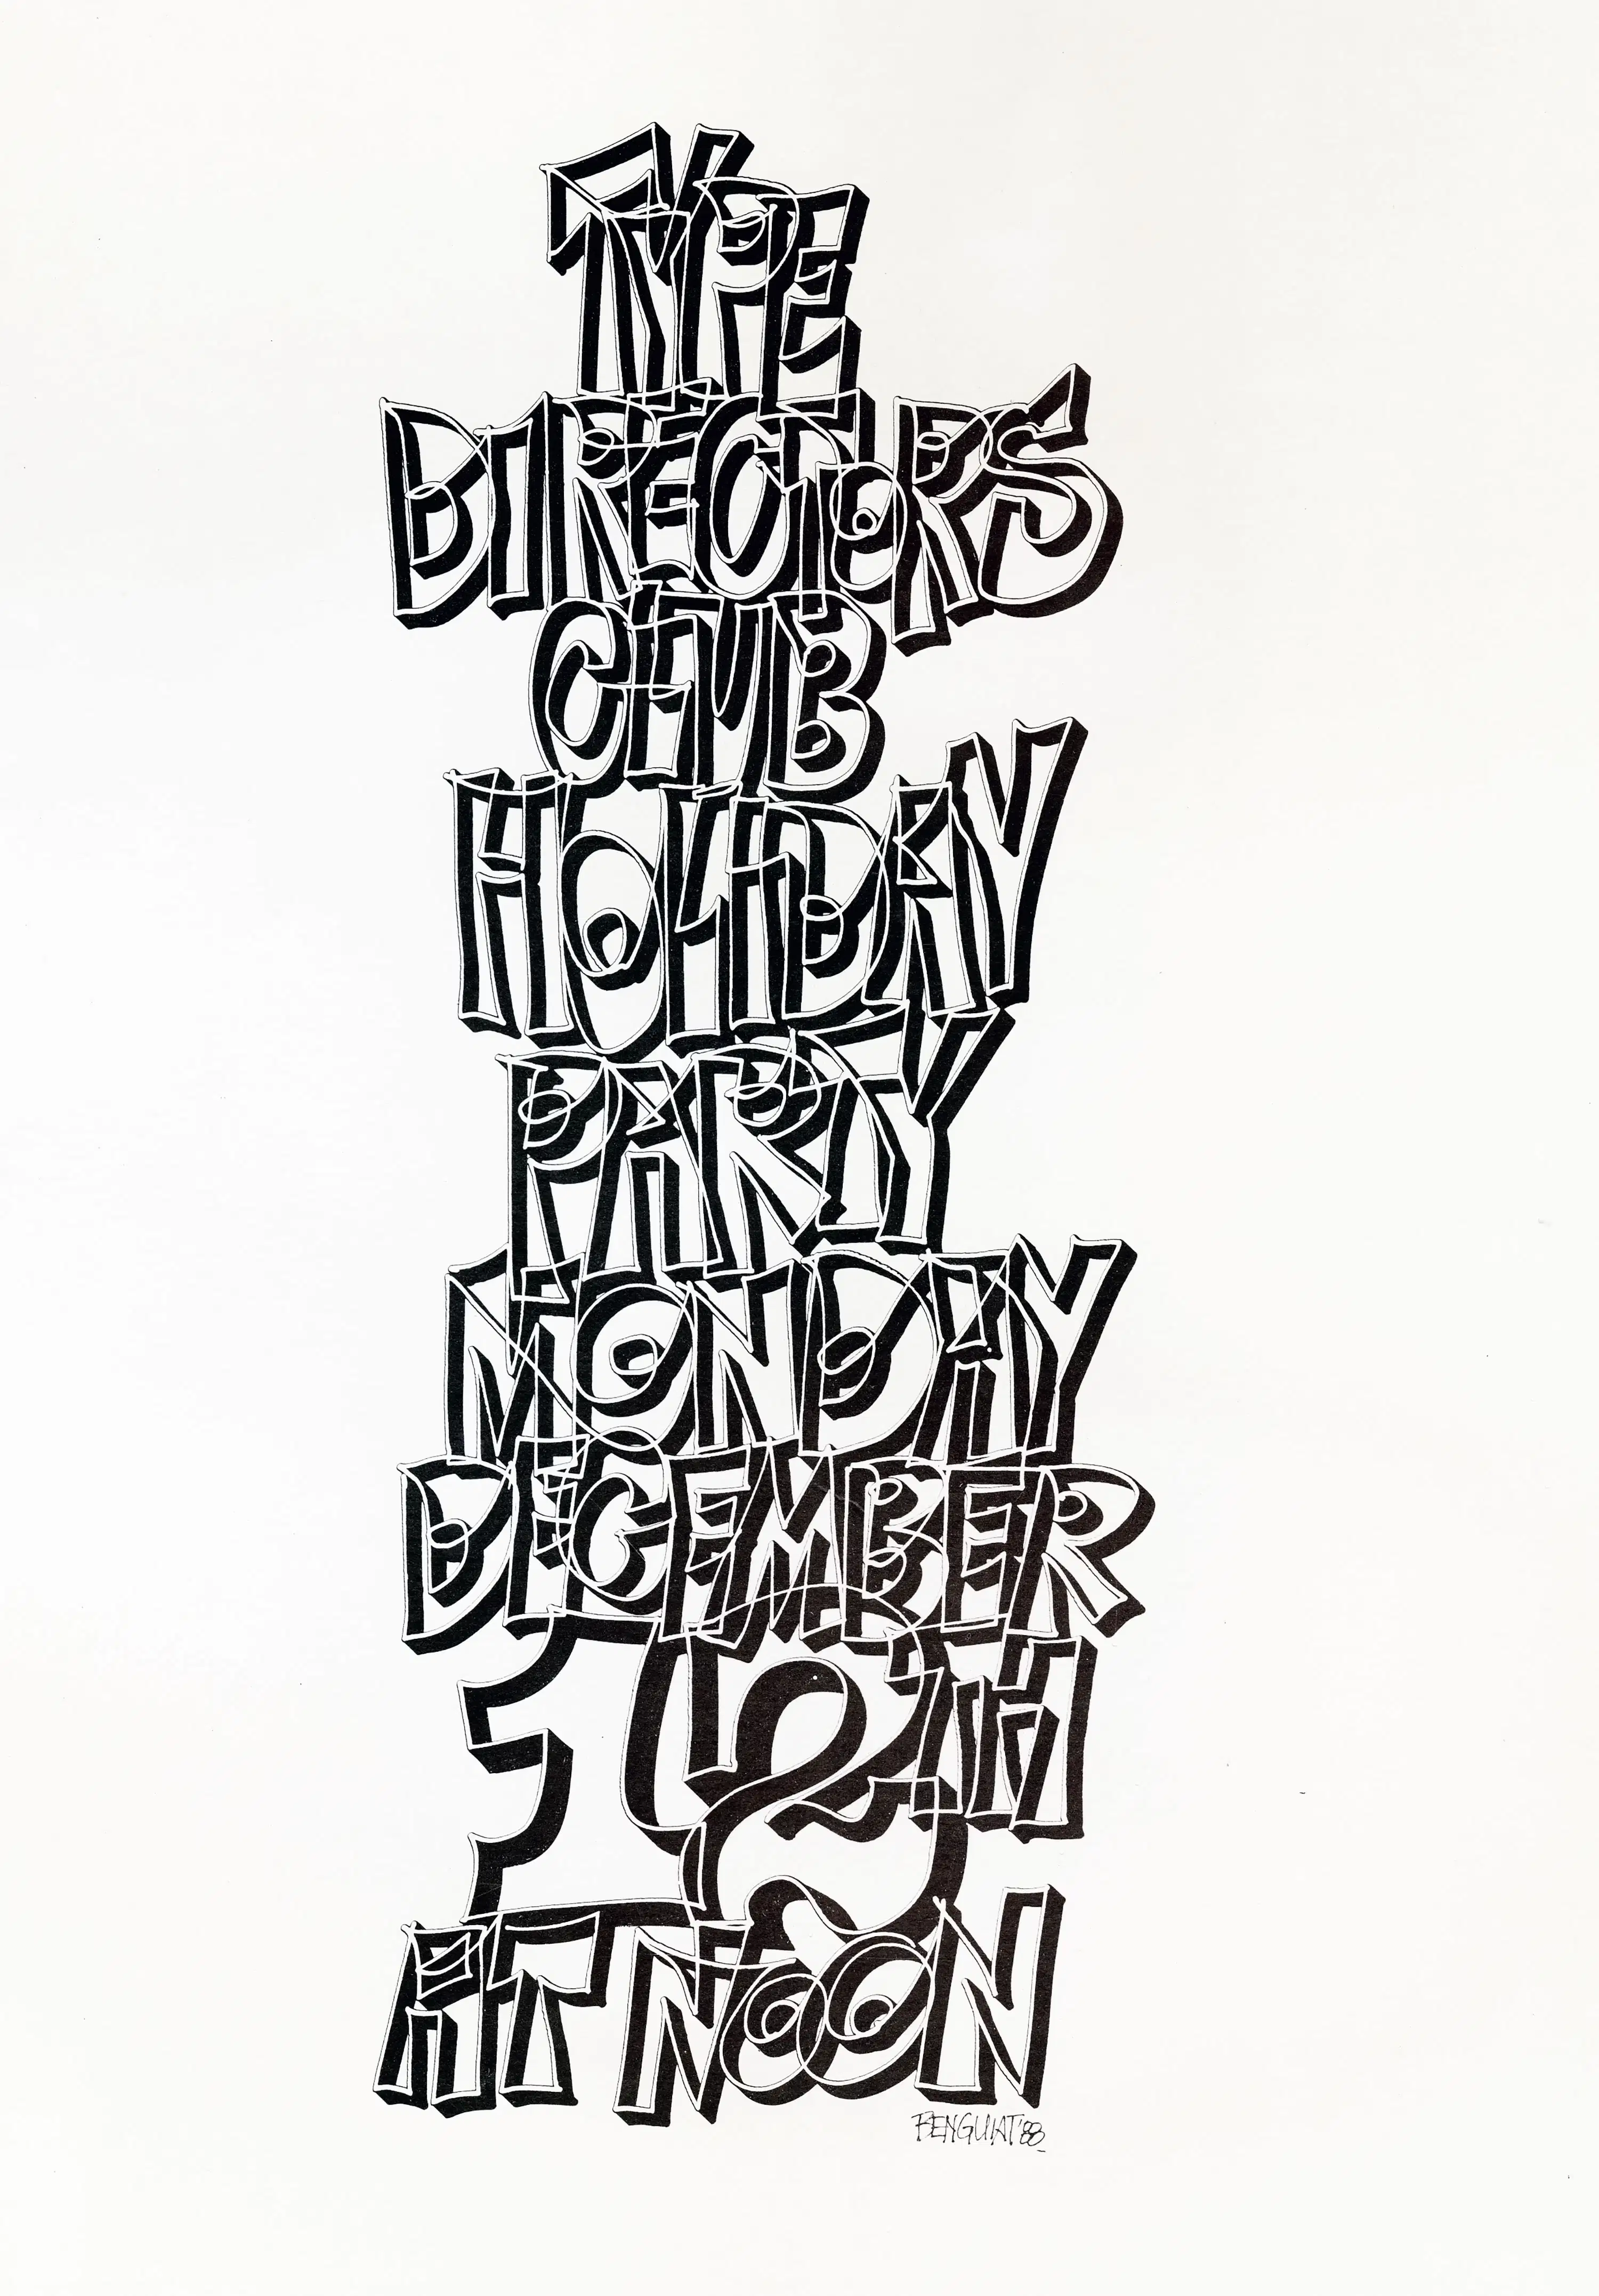 TYPE
DIRECTORS
CLUB
HOLIDAY
PARTY
MONDAY
DECEMBER
12TH
AT NOON
BENGUIAT '88